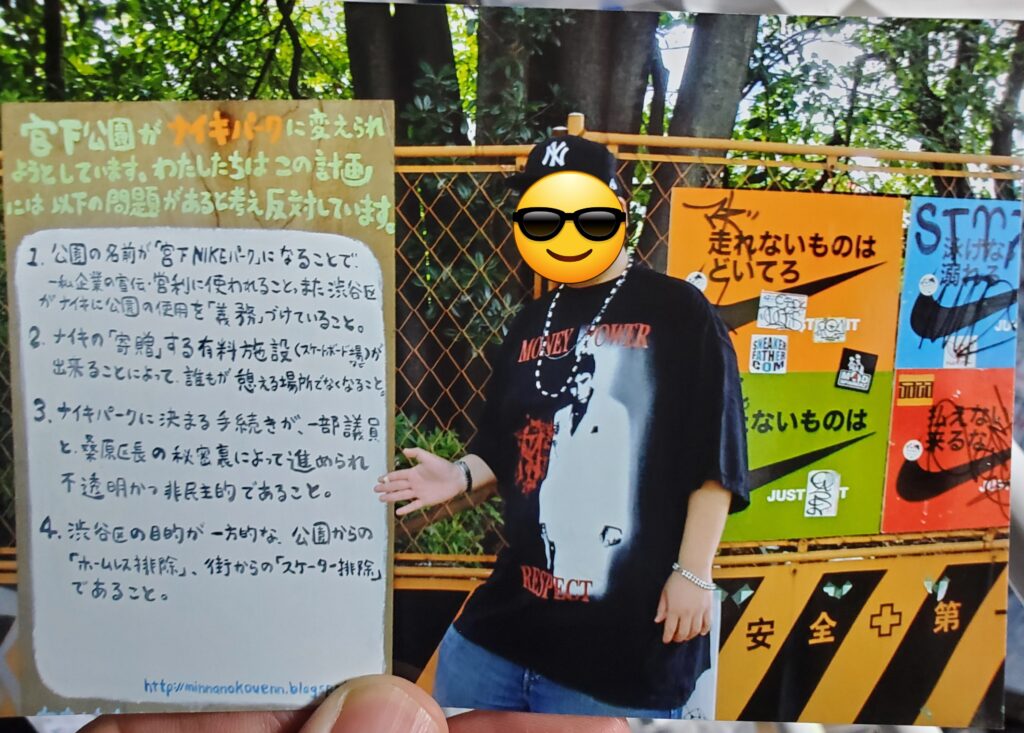 宮下公園がナイキパークに変えられ
ようとしています。わたしたちはこの計画
には以下の問題があると考え反対しています。
1. 公園の名前が「宮下NIKEパーク」になることで、
一私企業の宣伝・営利に使われること。また渋谷区
がナイキに公園の使用を「義務」づけていること。
2. ナイキの「寄贈」する有料施設(スケートボード場)が
出来ることによって、誰もが憩える場所でなくなること。
3. ナイキパークに決まる手続きが、一部議員
と、桑原区長の秘密裏によって進められ
不透明かつ非民主的であること。
4. 渋谷区の目的が一方的な、公園からの
「ホームレス排除」、街からの「スケーター排除」
であること。
http://minnanokouenn.blogsp
NY
MONEY POWER
RESPECT
走れないものは
どいてろ
SNEAKER
FATHER
COM
ないものは
JUST IT
泳げな
溺れろ
JU
払えない
来るな
安全＋第一